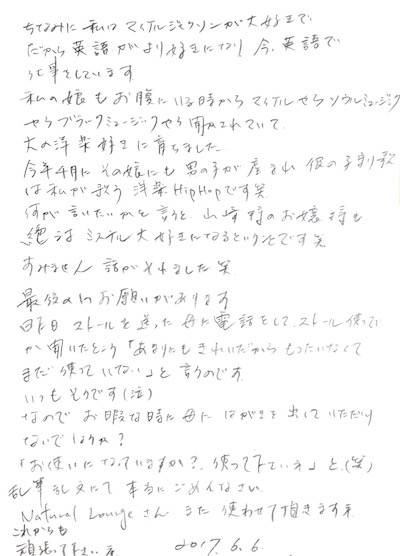 ちなみに 私は マイケルジャクソンが大好きで
だから英語がより好きになり 今、英語で
仕事をしています
私の娘もお腹にいる時からマイケルやらソウルミュージック
やらブラックミュージックやら聞かされていて
大の洋楽好きに育ちました
今年4月に その娘にも 男の子が産まれ 彼の子守り歌
は私が歌う 洋楽HipHopです笑
何が言いたいかと言うと 山崎様のお嬢様も
絶対 ミュージカル大好きになるということです笑
すみません 話がそれました笑
最後の1つお願いがあります
昨日 ストールを送った母に電話をして、ストール使って
るか聞いたところ「あまりにもきれいだから もったいなくて
まだ使っていない」と言うのです
いつもそうです(泣)
なので お暇な時に母に はがきを出していただけ
ないでしょうか?
「お使いになっていますか?、使って下さいネ」と、(笑)
乱筆乱文にて 本当にごめんなさい
Natural Loungeさん また 使わせて頂きますネ
これからも
頑張って下さいネ 2017.6.6.